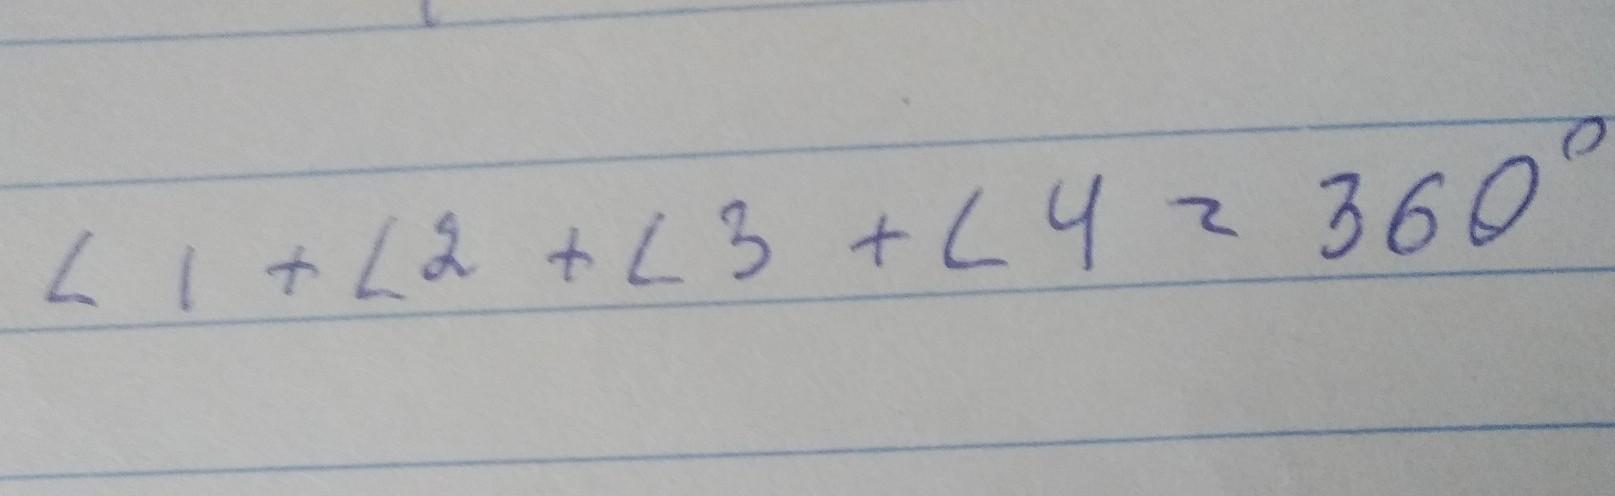 ∠1 + ∠2 + ∠3 + ∠4 = 360°